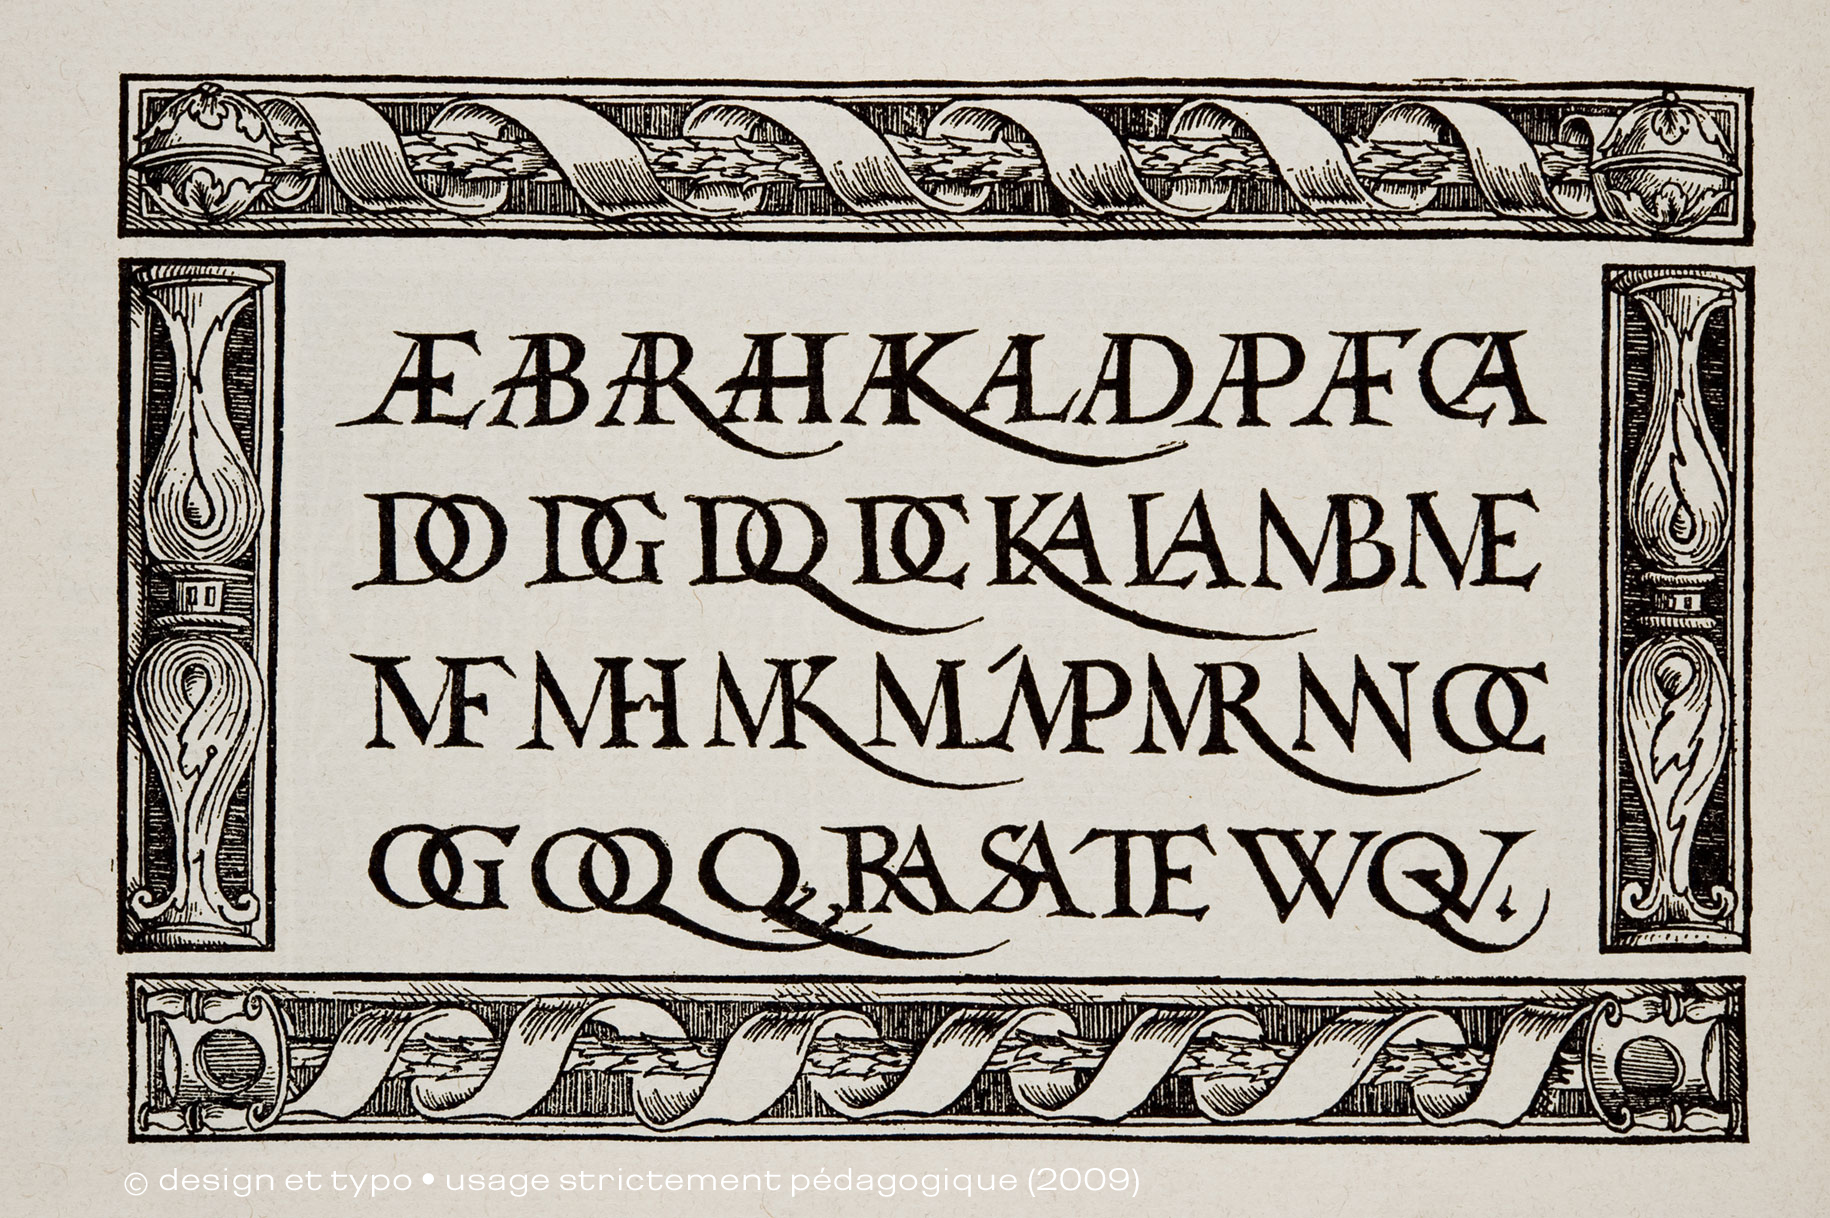 Æ AB AR AH AK AL AD AP AF CA
DO DG DQ DC KA LA NB NE
NF NH NK NL NP NR NN OC
OG OQ Q RA SA TE W QV.
© design et typo • usage strictement pédagogique (2009)